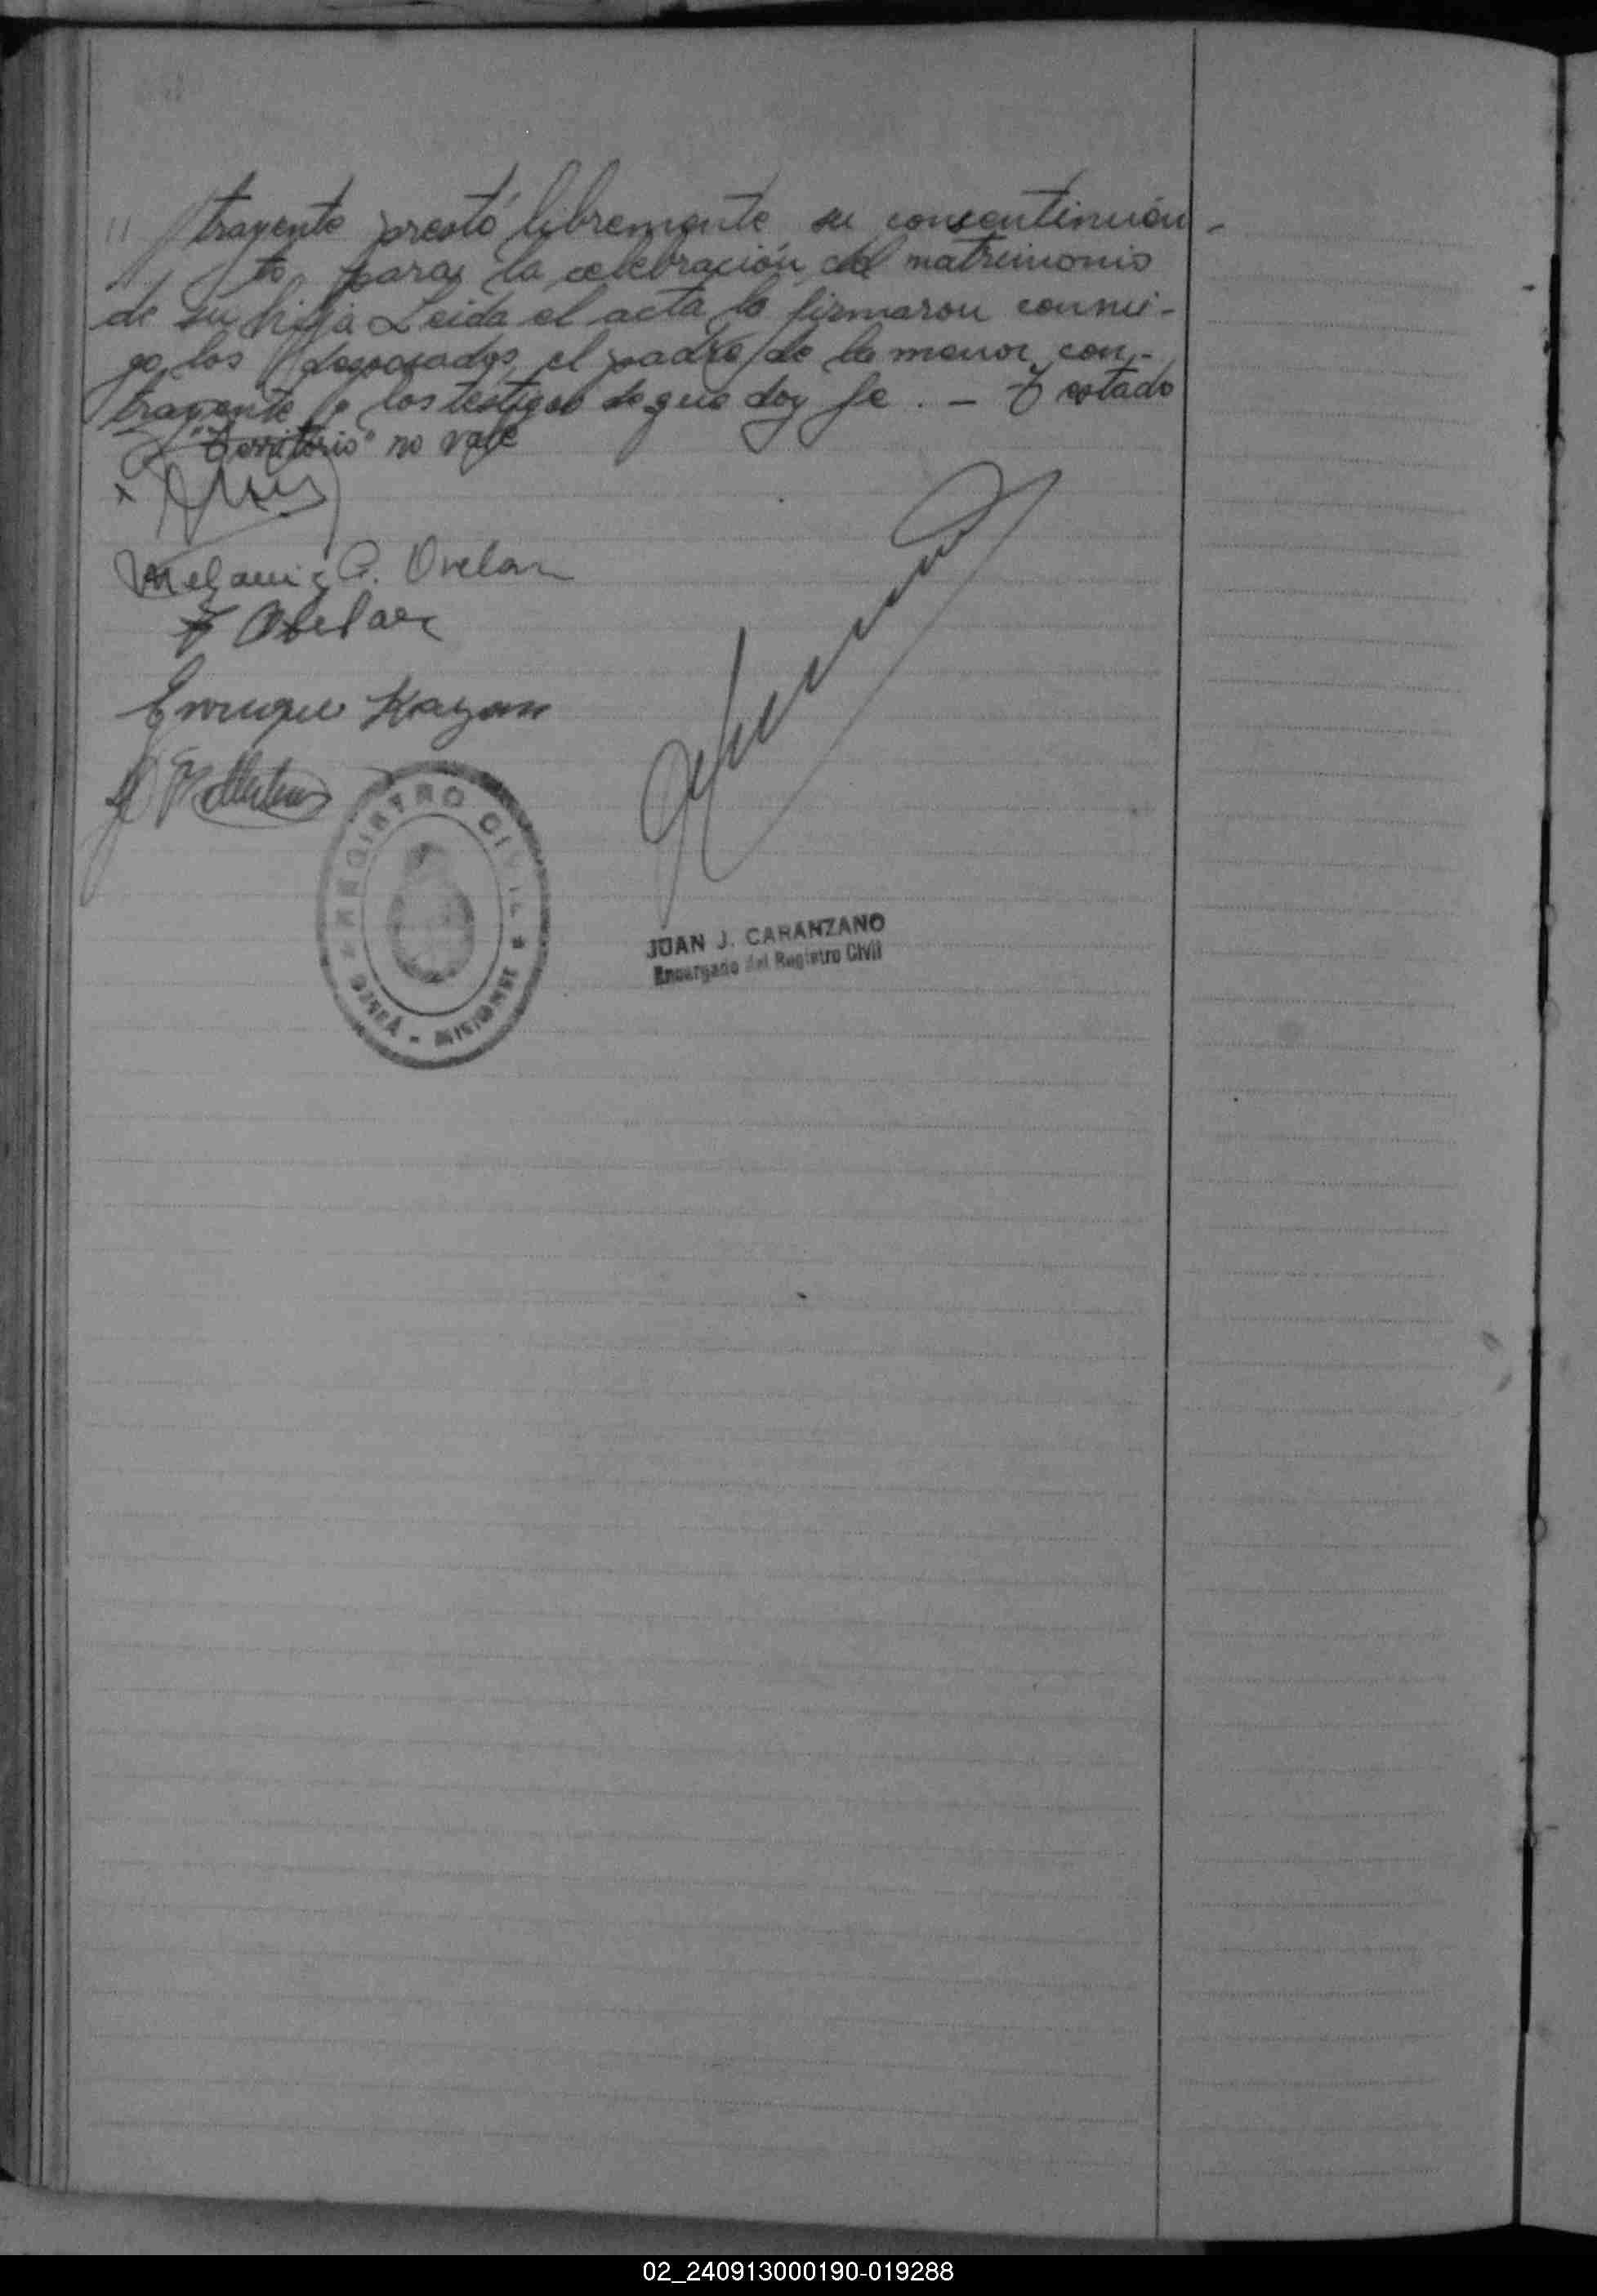 // trayente prestó libremente su consentimien-
to, para la celebración del matrimonio
de su hija Leida el acta la firmaron conmi-
go, los desposados, el padre de la menor con-
trayente y los testigos de que doy fe. - Testado
"Territorio" no vale
Melania C. Ovelar
Obelar
Enrique Kazan
REGISTRO CIVIL
OBERÁ - MISIONES
JUAN J. CARANZANO
Encargado del Registro Civil
02_240913000190-019288